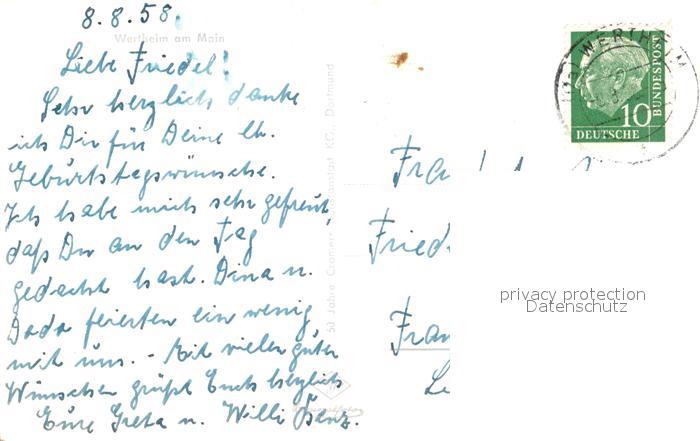 8.8.58.
Wertheim am Main
Liebe Friedel!
Sehr herzlich danke
ich Dir für Deine lb.
Geburtstagswünsche.
Ich habe mich sehr gefreut,
daß Du an den Tag
gedacht hast. Dina u.
Dada feierten ein wenig
mit uns. - Mit vielen guten
Wünschen grüßt Euch herzlich
Eure Greta u. Willi Benz.
50 Jahre Cramers Kunstanstalt KG., Dortmund
WERTHEIM
10
DEUTSCHE
BUNDESPOST
Fra
Fried
Fran
privacy protection
Datenschutz